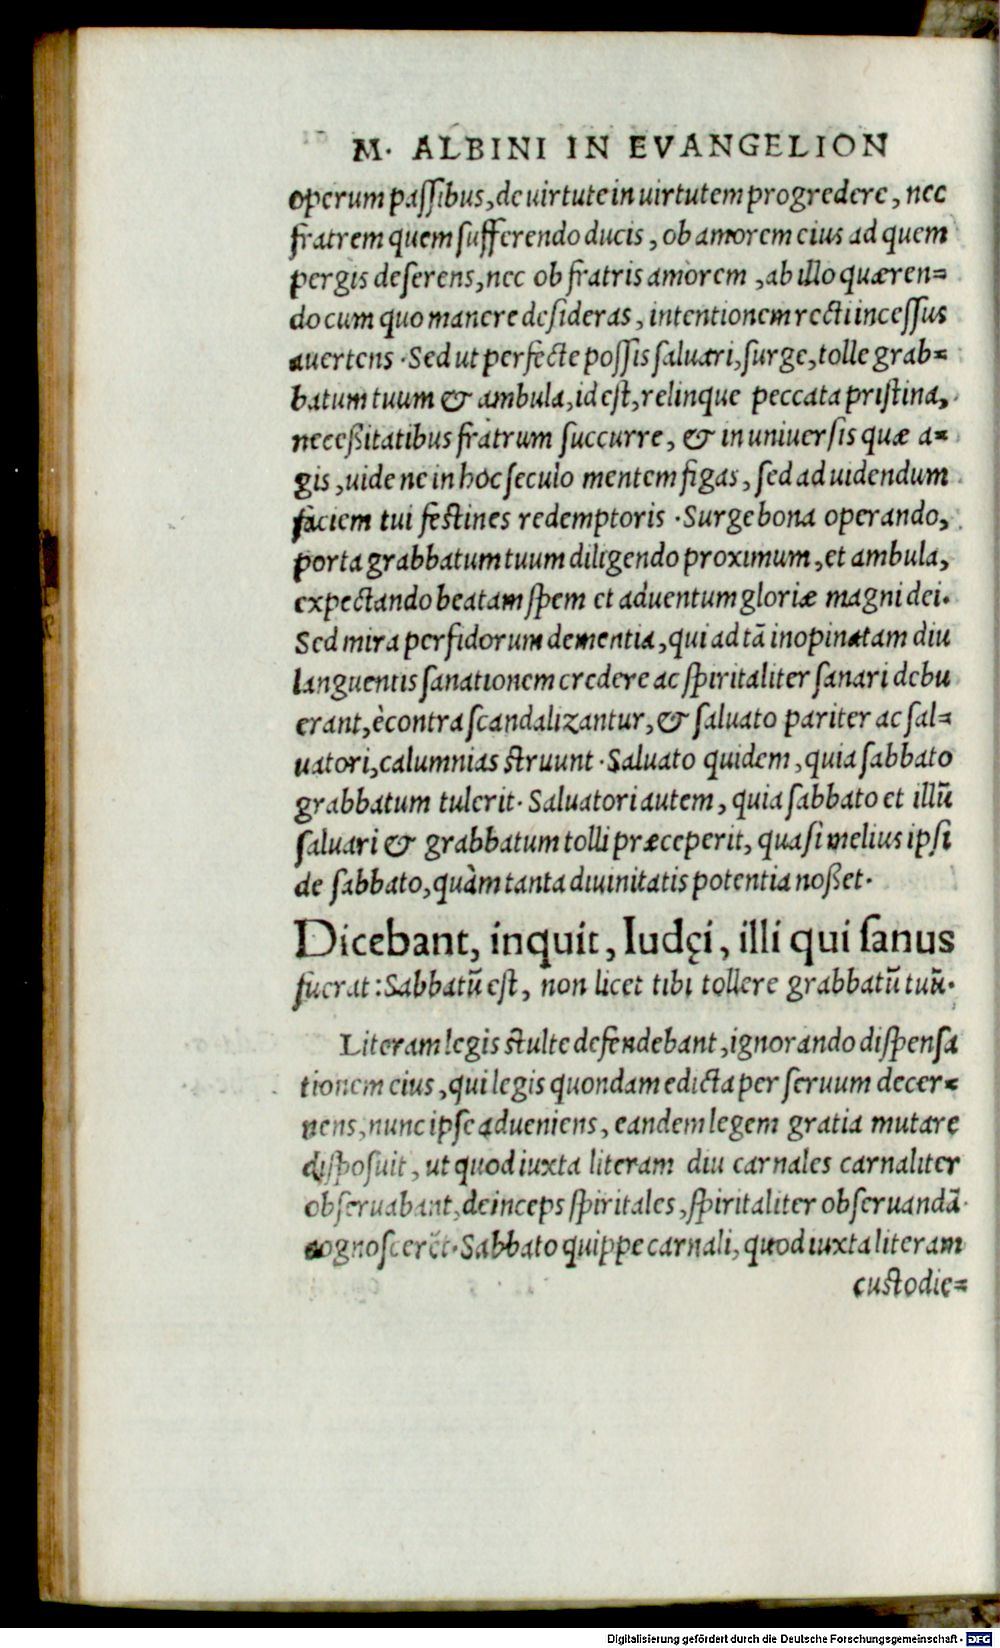 M. ALBINI IN EVANGELION
operum passibus, de uirtute in uirtutem progredere, nec
fratrem quem sufferendo ducis, ob amorem eius ad quem
pergis deserens, nec ob fratris amorem, ab illo quæren=
do cum quo manere desideras, intentionem recti incessus
auertens. Sed ut perfecte possis saluari, surge, tolle grab=
batum tuum & ambula, id est, relinque peccata pristina,
necessitatibus fratrum succurre, & in uniuersis quæ a=
gis, uide ne in hoc seculo mentem figas, sed ad uidendum
faciem tui festines redemptoris. Surge bona operando,
porta grabbatum tuum diligendo proximum, et ambula,
expectando beatam spem et aduentum gloriæ magni dei.
Sed mira perfidorum dementia, qui ad tā inopinatam diu
languentis sanationem credere ac spiritaliter sanari debu
erant, è contra scandalizantur, & saluato pariter ac sal=
uatori, calumnias struunt. Saluato quidem, quia sabbato
grabbatum tulerit. Saluatori autem, quia sabbato et illū
saluari & grabbatum tolli præceperit, quasi melius ipsi
de sabbato, quàm tanta diuinitatis potentia noßet.
Dicebant, inquit, Iudęi, illi qui sanus
fuerat: Sabbatū est, non licet tibi tollere grabbatū tuū.
Literam legis stulte defendebant, ignorando dispensa
tionem eius, qui legis quondam edicta per seruum decer=
nens, nunc ipse adueniens, eandem legem gratia mutare
disposuit, ut quod iuxta literam diu carnales carnaliter
obseruabant, deinceps spiritales, spiritaliter obseruandā
cognoscerēt. Sabbato quippe carnali, quod iuxta literam
custodie=
Digitalisierung gefördert durch die Deutsche Forschungsgemeinschaft - DFG